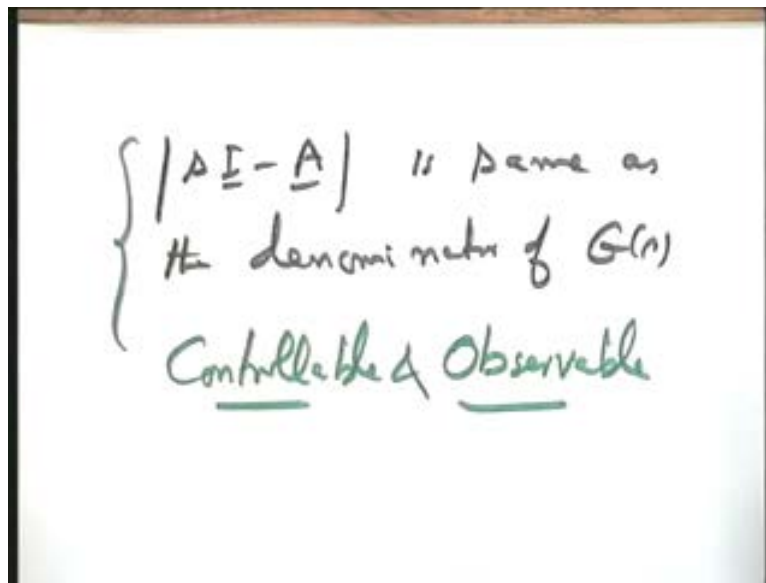 |sI - A| is same as
the denominator of G(s)
Controllable & Observable